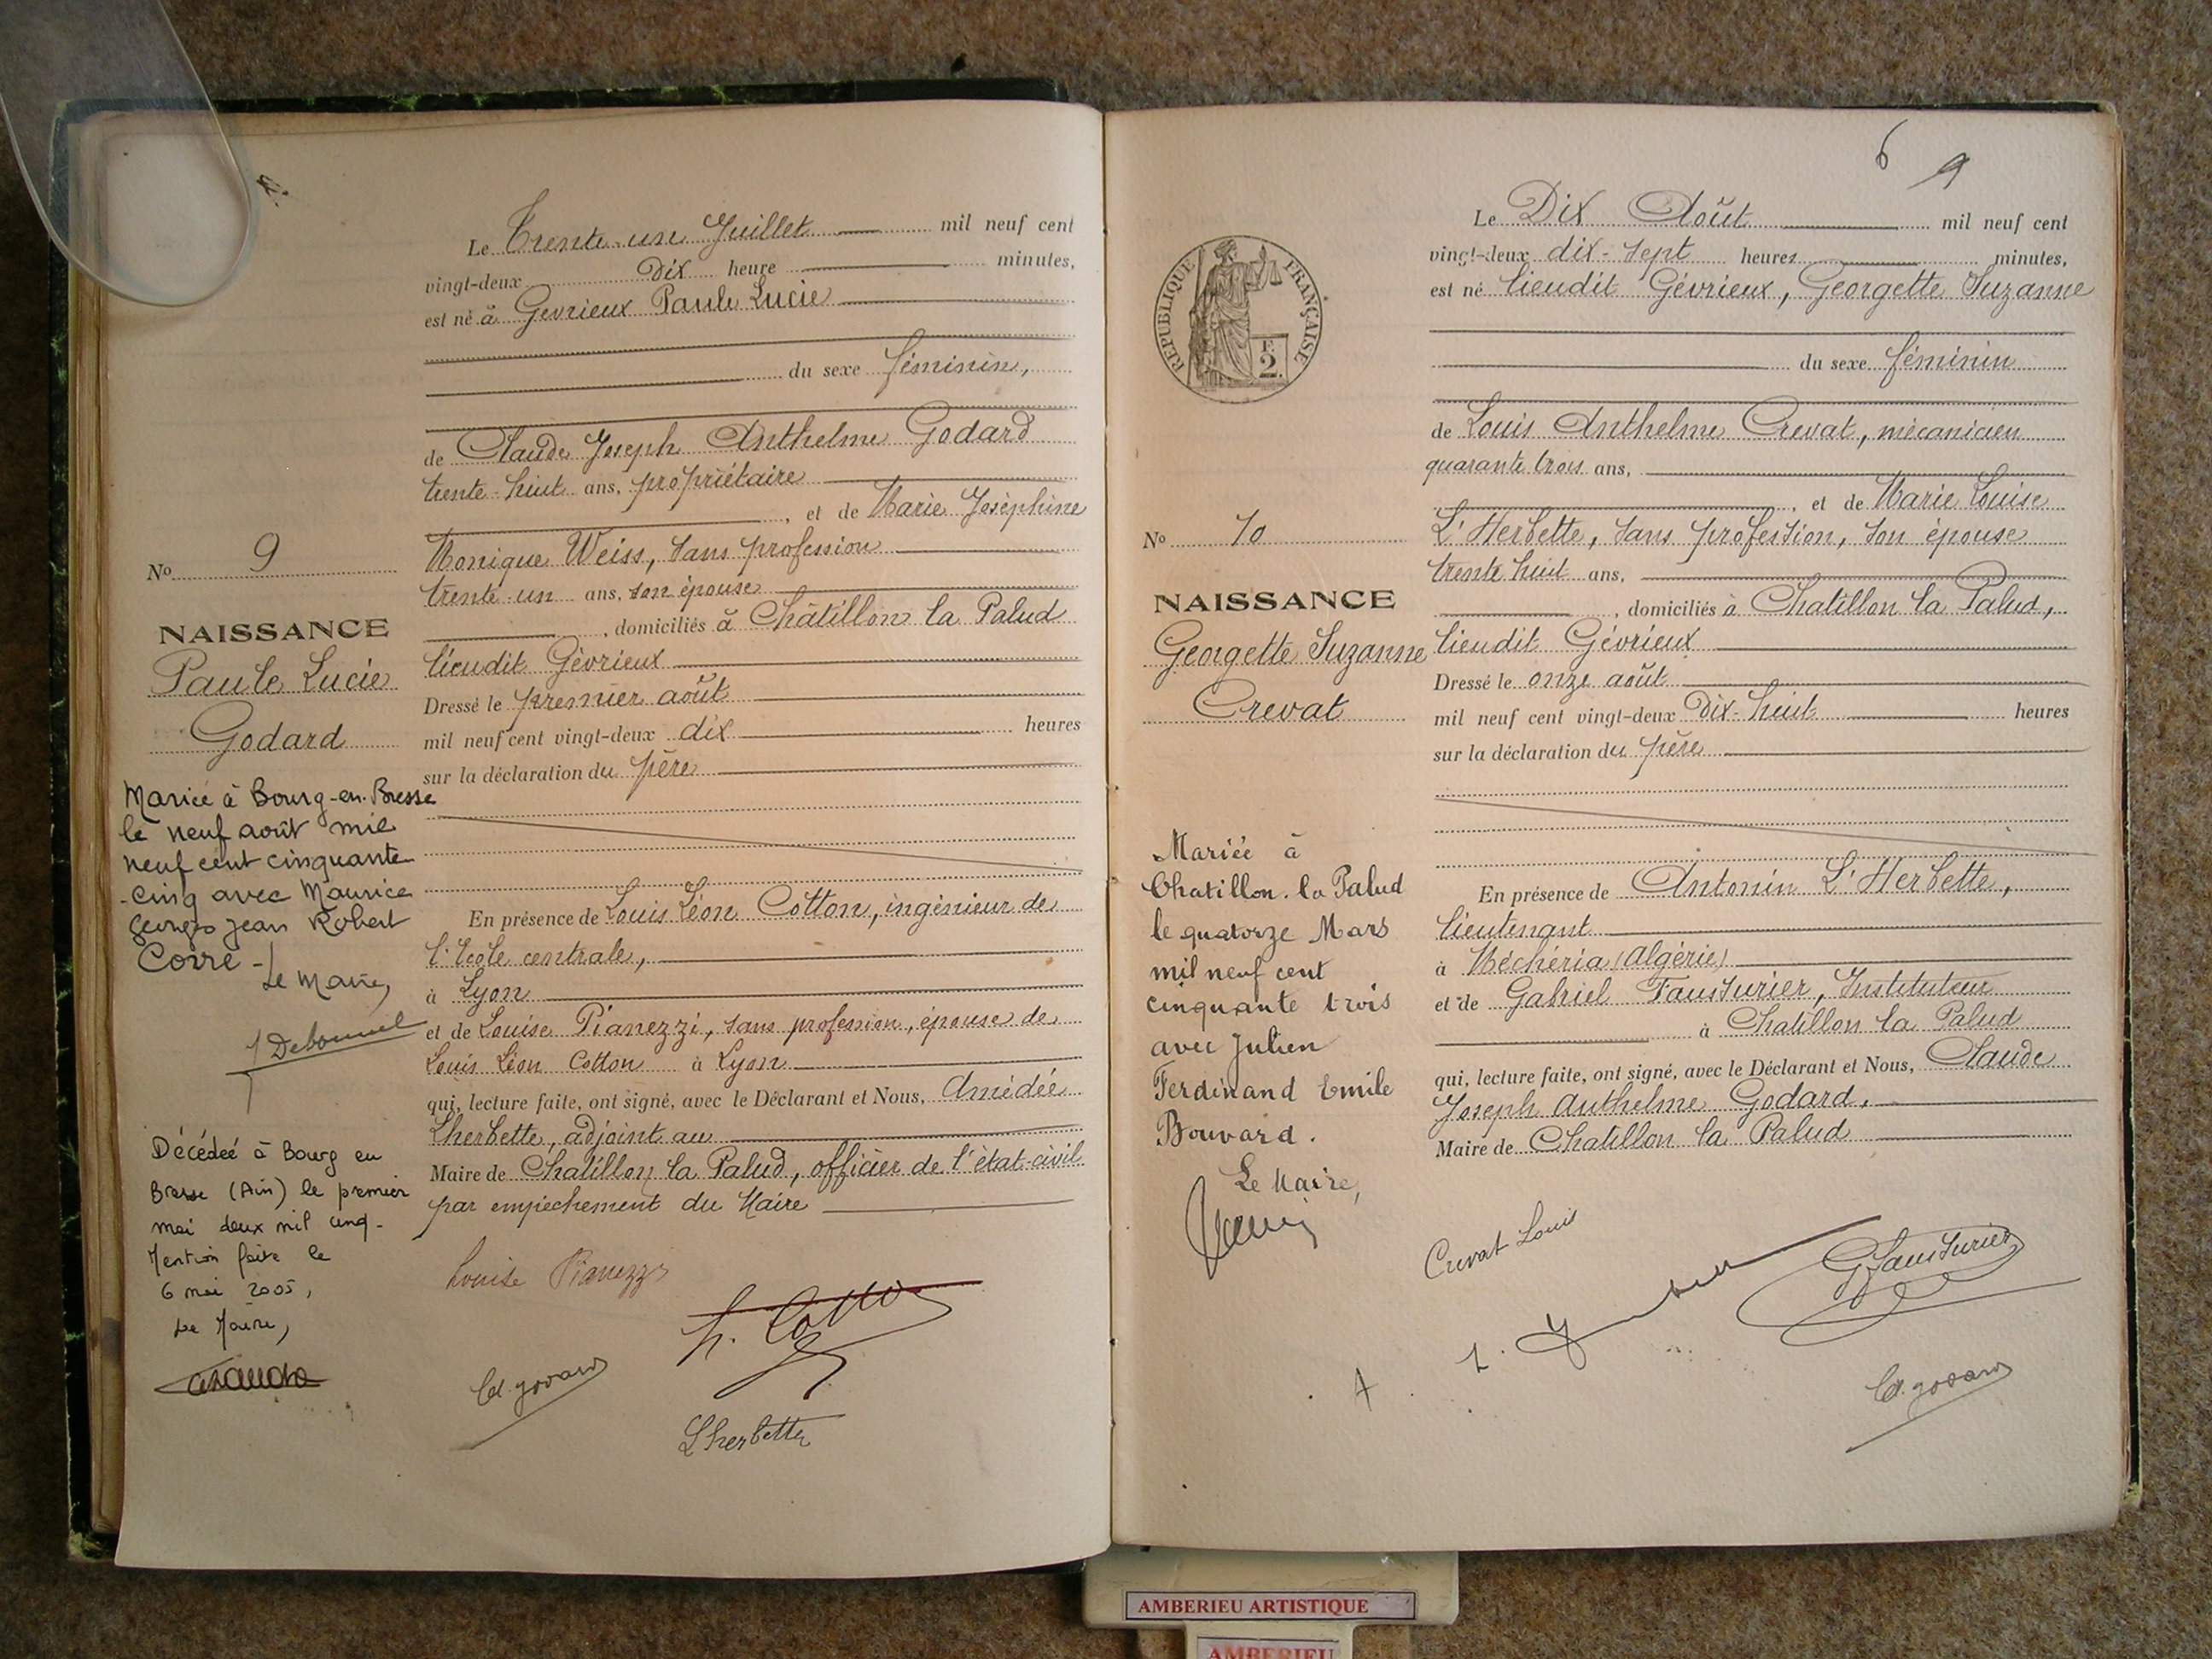 Le Trente-un Juillet mil neuf cent
vingt-deux Dix heure minutes,
est né à Gévrieux Paule Lucie
du sexe féminin,
de Claude Joseph Anthelme Godard
trente-huit ans, propriétaire
, et de Marie Joséphine
Monique Weiss, sans profession
trente-un ans, son épouse
, domiciliés à Châtillon la Palud
lieudit Gévrieux
Dressé le premier août
mil neuf cent vingt-deux dix heures
sur la déclaration du père
En présence de Louis Léon Cotton, ingénieur de
l'Ecole centrale,
à Lyon
et de Louise Pianezzi, sans profession, épouse de
Louis Léon Cotton à Lyon
qui, lecture faite, ont signé, avec le Déclarant et Nous, Amédée
Lherbette, adjoint au
Maire de Chatillon la Palud, officier de l'état-civil
par empêchement du Maire
Louise Pianezzi
L. Cotton
Cl. godard
Lherbette
No 9
NAISSANCE
Paule Lucie
Godard
Mariée à Bourg-en-Bresse
le neuf août mil
neuf cent cinquante
-cinq avec Maurice
Georges Jean Robert
Corre -
Le Maire,
Décédée à Bourg en
Bresse (Ain) le premier
mai deux mil cinq -
Mention faite le
6 mai 2005,
Le Maire,
6 9
Le Dix Août mil neuf cent
vingt-deux dix-sept heures minutes,
est né lieudit Gévrieux, Georgette Suzanne
du sexe féminin
de Louis Anthelme Crevat, mécanicien
quarante trois ans,
, et de Marie Louise
L'Herbette, sans profession, son épouse
trente huit ans,
, domiciliés à Chatillon la Palud,
lieudit Gévrieux
Dressé le onze août
mil neuf cent vingt-deux Dix-huit heures
sur la déclaration du père
En présence de Antonin L'Herbette,
lieutenant
à Méchéria (Algérie)
et de Gabriel Fausturier, Instituteur
à Chatillon la Palud
qui, lecture faite, ont signé, avec le Déclarant et Nous, Claude
Joseph Anthelme Godard,
Maire de Chatillon la Palud
Crevat Louis
G Fausturier
Cl. godard
RÉPUBLIQUE FRANÇAISE
F.
2.
No 10
NAISSANCE
Georgette Suzanne
Crevat
Mariée à
Chatillon-la Palud
le quatorze Mars
mil neuf cent
cinquante trois
avec Julien
Ferdinand Emile
Bouvard.
Le Maire,
AMBERIEU ARTISTIQUE
AMBERIEU